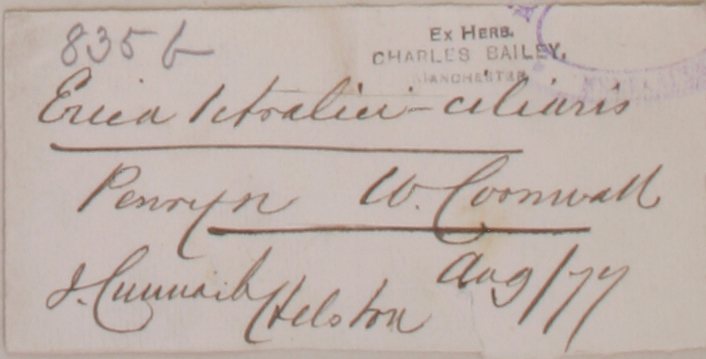 835 b
Ex Herb.
CHARLES BAILEY,
MANCHESTER.
Erica tetralici-ciliaris
Penryn W. Cornwall
Aug/77
J. Cunnack Helston